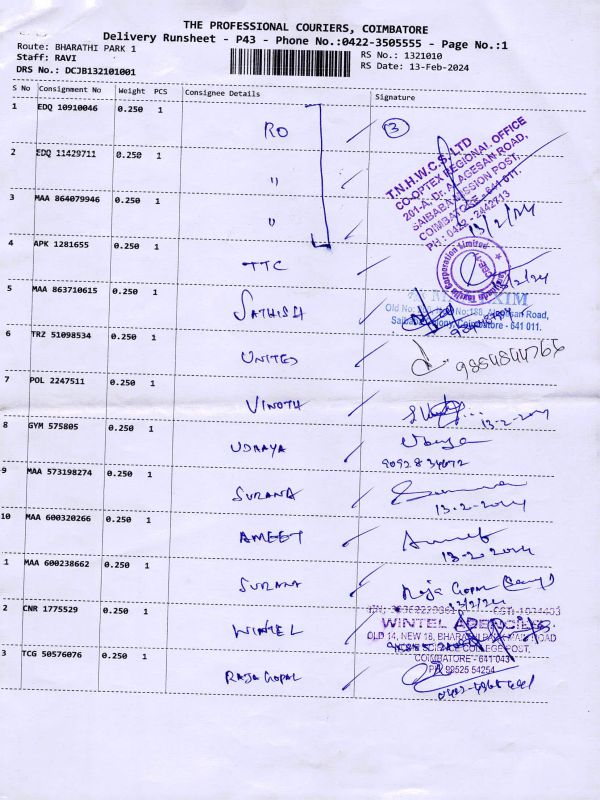 THE PROFESSIONAL COURIERS, COIMBATORE
Delivery Runsheet - P43 - Phone No.:0422-3505555 - Page No.:1
Route: BHARATHI PARK 1
RS No.: 1321010
Staff: RAVI
RS Date: 13-Feb-2024
DRS No.: DCJB132101001
S No Consignment No Weight PCS Consignee Details Signature
1 EDQ 10910046 0.250 1 RO 13
2 EDQ 11429711 0.250 1 "
3 MAA 864079946 0.250 1 "
T.N.H.W.C.S. LTD
CO-OPTEX REGIONAL OFFICE
201-A, Dr. ALAGESAN ROAD,
SAIBABA MISSION POST,
COIMBATORE - 641 011.
PH : 0422 - 2442713
13/2/24
4 APK 1281655 0.250 1 TTC
5 MAA 863710615 0.250 1 SATHISH
Road,
Coimbatore - 641 011.
6 TRZ 51098534 0.250 1 UNITED
7 POL 2247511 0.250 1 VINOTH 13-2-2024
8 GYM 575805 0.250 1 UDHAYA Udaya
9092834672
9 MAA 573198274 0.250 1 SURANA
13-2-2024
10 MAA 600320266 0.250 1 AMEET Ameet
13-2-2024
1 MAA 600238662 0.250 1 SURANA Raja Gopal
13/2/24
2 CNR 1775529 0.250 1 WINTEL
WINTEL
OLD 14, NEW 18, ROAD
COLLEGE POST,
COIMBATORE - 641 043
PH: 98525 54254
3 TCG 50576076 0.250 1 RAJA GOPAL